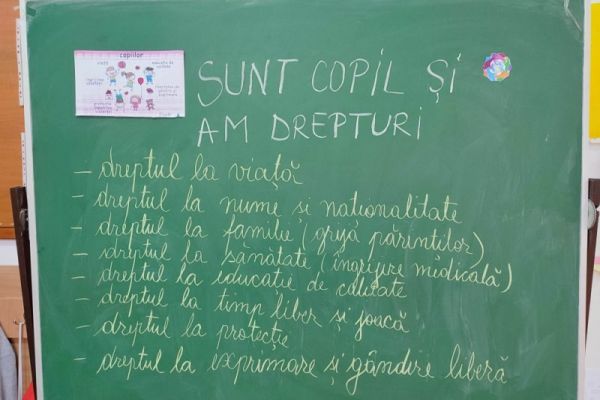 copiilor
SUNT COPIL ȘI
AM DREPTURI
- dreptul la viață
- dreptul la nume si nationalitate
- dreptul la familie (grija părintilor)
- dreptul la sănătate (îngrijire medicală)
- dreptul la educatie de calitate
- dreptul la timp liber și joacă
- dreptul la protecție
- dreptul la exprimare și gândire liberă